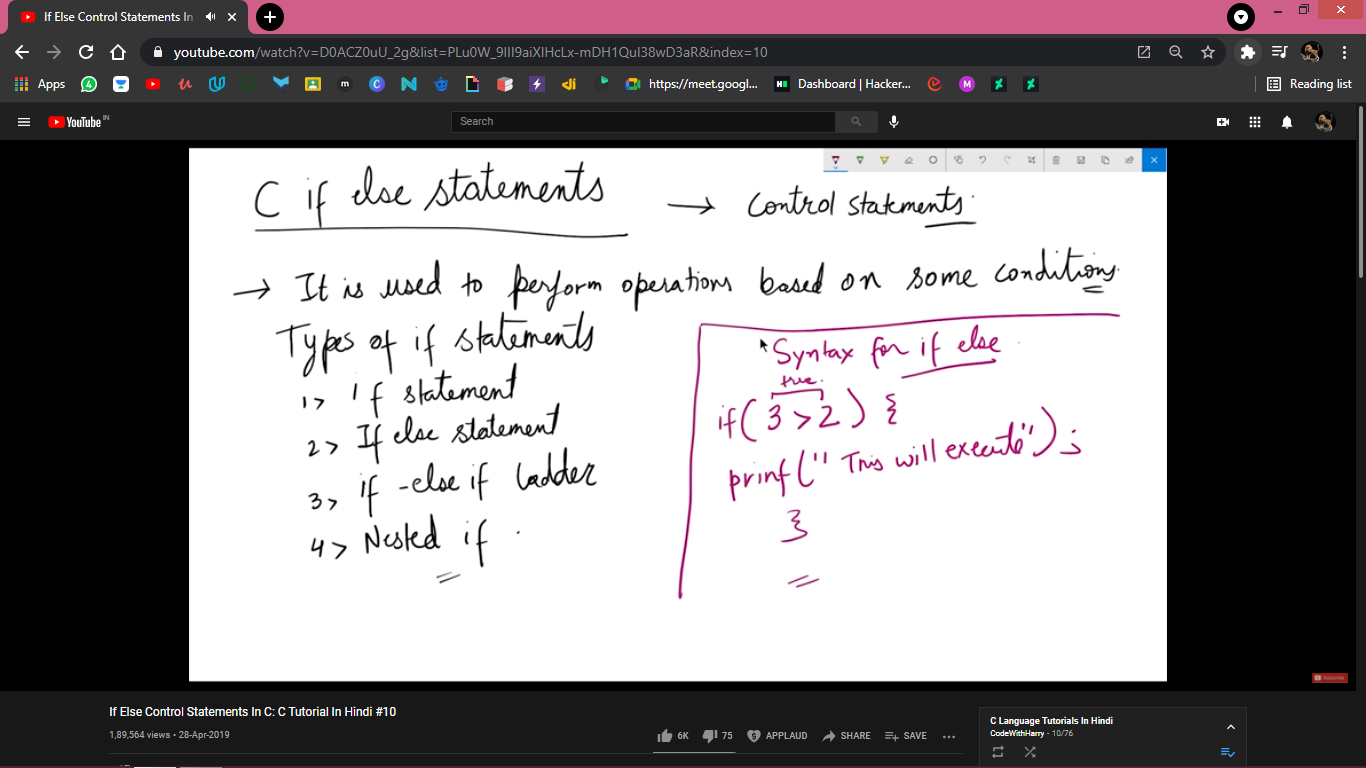 If Else Control Statements In
youtube.com/watch?v=D0ACZ0uU_2g&list=PLu0W_9lII9aiXlHcLx-mDH1Qul38wD3aR&index=10
Apps
https://meet.googl...
Dashboard | Hacker...
Reading list
YouTube IN
Search
C if else statements → Control statements
→ It is used to perform operations based on some conditions
Types of if statements
1> If statement
2> If else statement
3> if -else if ladder
4> Nested if
Syntax for if else
true.
if( 3 > 2 ) {
prinf(" This will execute");
}
Subscribe
If Else Control Statements In C: C Tutorial In Hindi #10
1,89,564 views • 28-Apr-2019
6K 75 APPLAUD SHARE SAVE
C Language Tutorials In Hindi
CodeWithHarry - 10/76